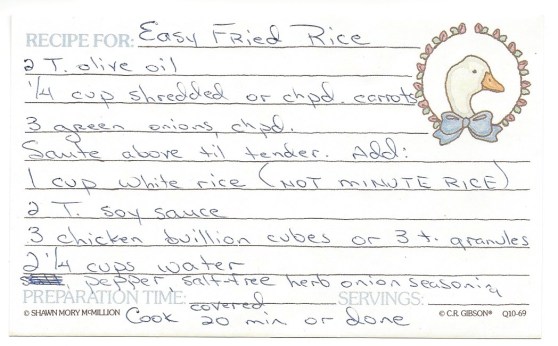 RECIPE FOR: Easy Fried Rice
2 T. olive oil
1/4 cup shredded or chpd. carrots
3 green onions, chpd.
Saute above til tender. Add:
1 cup white rice (NOT MINUTE RICE)
2 T. soy sauce
3 chicken buillion cubes or 3 t. granules
2 1/4 cups water
pepper, salt-free herb onion seasoning
PREPARATION TIME: SERVINGS:
Cook covered 20 min or done
© SHAWN MORY McMILLION © C.R. GIBSON® Q10-69